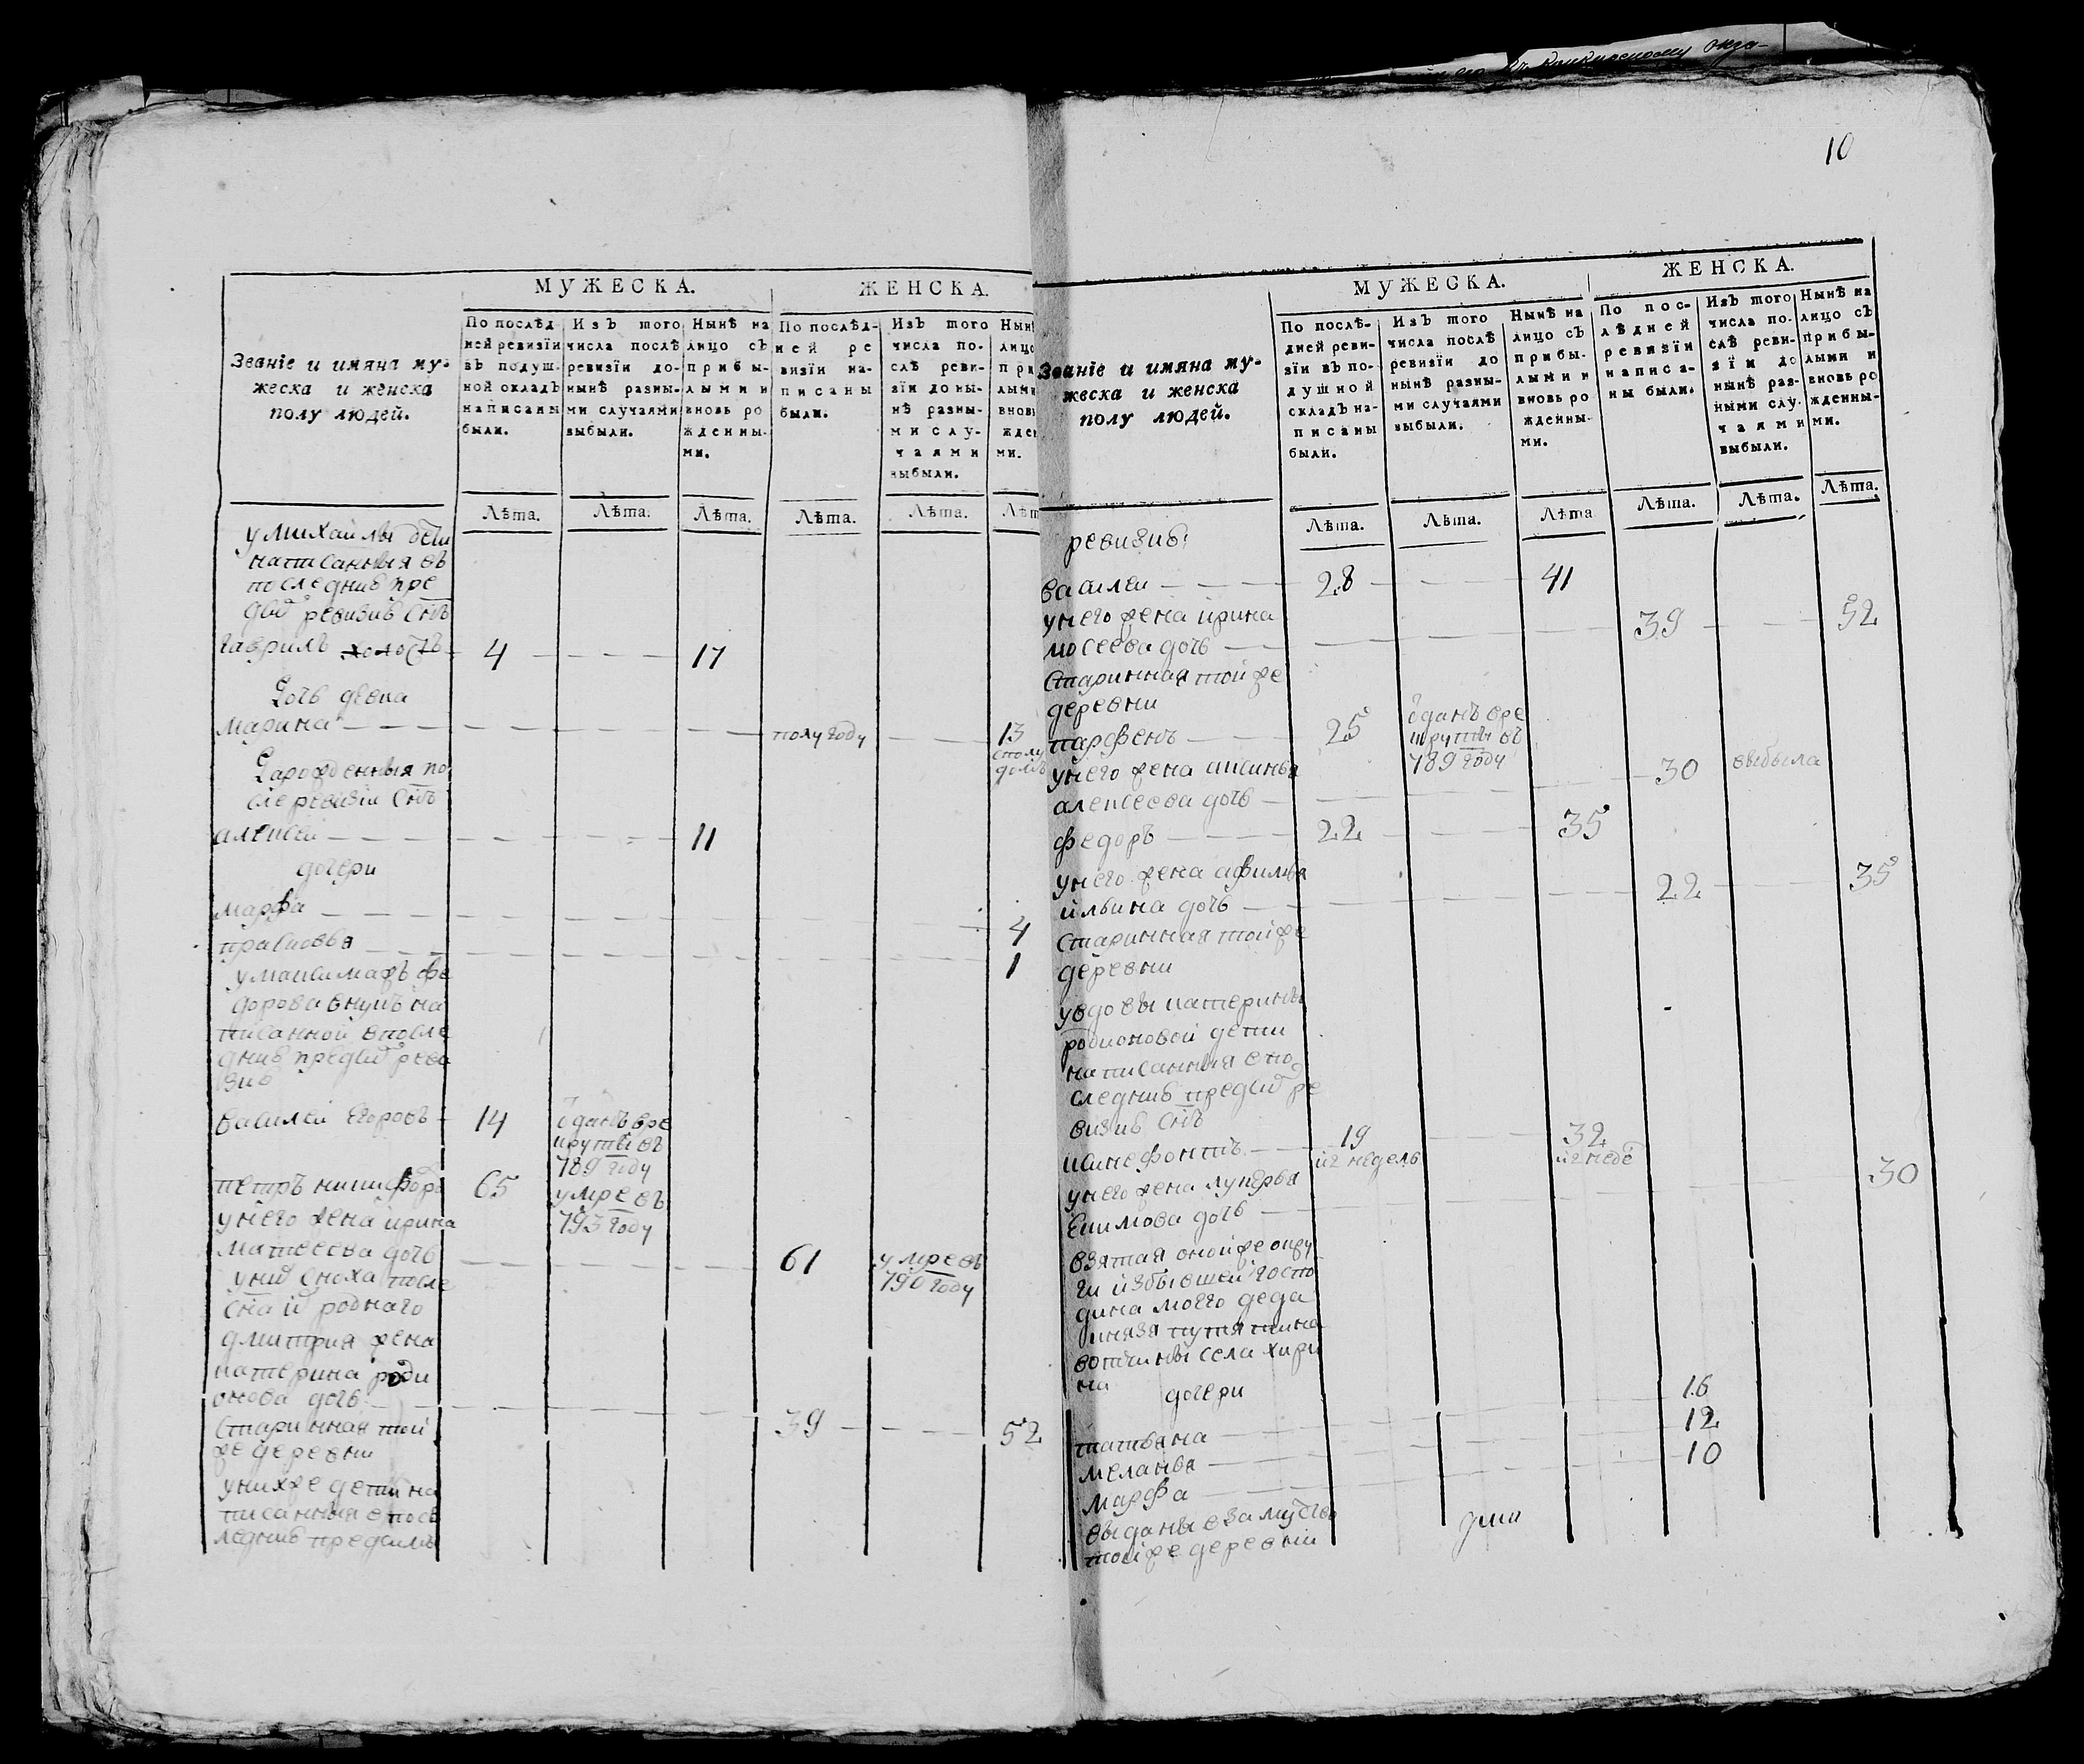 10
МУЖЕСКА. ЖЕНСКА.
Званїе и имяна му-
жеска и женска
полу людей.
По послѣд-
ней ревизїи
въ подуш-
ной окладъ
написаны
были.
Изъ того
числа послѣ
ревизїи до-
нынѣ разны-
ми случаями
выбыли.
Нынѣ на
лицо съ
прибы-
лыми и
вновь ро
жденны-
ми.
По послѣд-
ней ре
визїи на-
писаны
были.
Изъ того
числа по-
слѣ реви-
зїи до ны-
нѣ разны-
ми слу-
чаями
выбыли.
Лѣта. Лѣта. Лѣта. Лѣта. Лѣта.
у михайлы дети
написанныя въ
последнив пре
ревизив
гаврилъ холостъ 4 17
дочь девка
марина полугоду 13
сполу
Рарожденныя по
сле ревизїи
алексеи 11
дочери
марфа 4
прасковья 1
у максима фе
дорова внукъ на
писанной впосле
днив ревизив
василеи егоровъ 14 зданъ вре
круты въ
789 году
петръ никифоръ 65 умре въ
793 году
унего жена ирина
матвеева дочь 61 умре въ
790 году
сноха после
роднаго
дмитрия жена
катерина роди
онова дочь 39 52
старинная той
же деревни
унихже дети на
писанныя впос
леднив
МУЖЕСКА. ЖЕНСКА.
Званїе и имяна му-
жеска и женска
полу людей.
По послѣ-
дней реви-
зїи въ по-
душной
складъ на-
писаны
были.
Изъ того
числа послѣ
ревизїи до
нынѣ разны-
ми случаями
выбыли.
Нынѣ на
лицо съ
прибы-
лыми и
вновь ро
жденны-
ми.
По пос-
лѣдней
ревизїи
написа-
ны были.
Изъ того
числа по-
слѣ реви-
зїи до
нынѣ раз-
ными слу-
чаями
выбыли.
Нынѣ на
лицо съ
прибы-
лыми и
вновь ро
жденны-
ми.
Лѣта. Лѣта. Лѣта Лѣта. Лѣта. Лѣта.
ревизив:
василеи 28 41
унего жена ирина
мосеева дочь 39 52
старинная тойже
деревни
парфенъ 25 зданъ вре
круты въ
789 году
унего жена аксинья
алексеева дочь 30 выбыла
федоръ 22 35
унего жена афимья
ильина дочь 22 35
старинная тойже
деревни
увдовы катерины
родионовой дети
написанныя впо
следнив ре
визив
ксинефонтъ 19 32
и2 недель
унего жена лукерья
екимова дочь 30
взятая онойже окру
ги избывшей госпо
дина моего деда
князя путятина
вотчины села хири
на
дочери
татьяна 16
меланья 12
марфа 10
выданы взамуство
тойже деревни